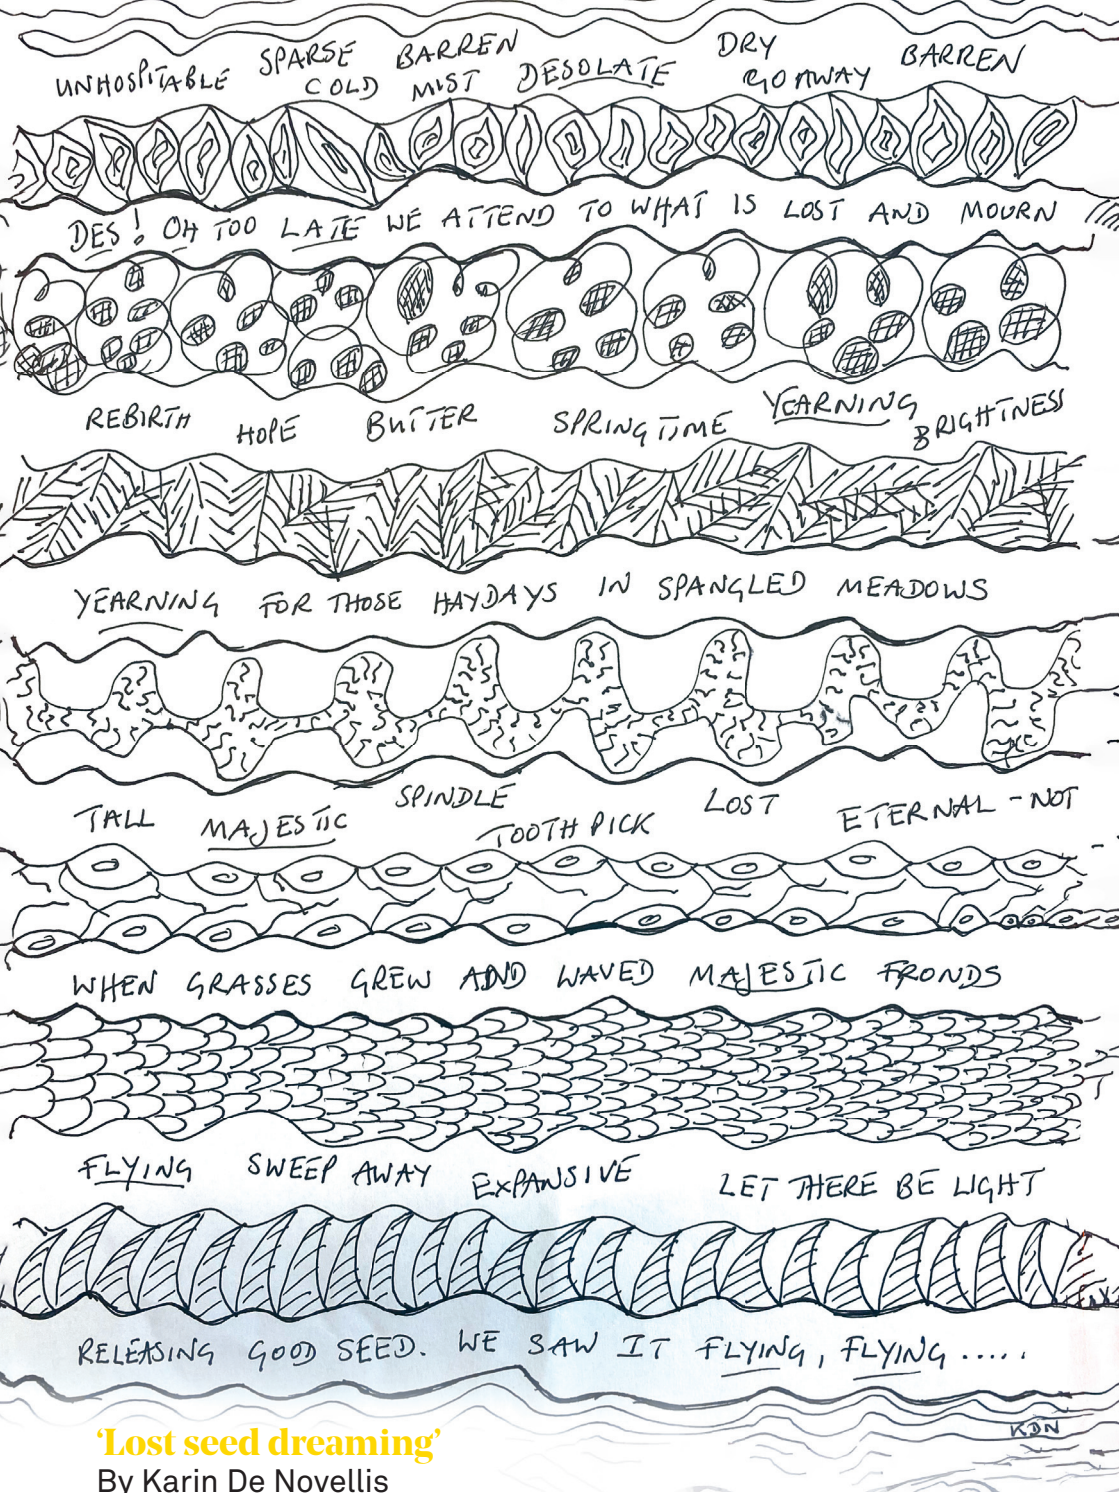 UNHOSPITABLE SPARSE COLD BARREN MIST DESOLATE DRY GO AWAY BARREN
DES! OH TOO LATE WE ATTEND TO WHAT IS LOST AND MOURN
REBIRTH HOPE BUTTER SPRINGTIME YEARNING BRIGHTNESS
YEARNING FOR THOSE HAYDAYS IN SPANGLED MEADOWS
TALL MAJESTIC SPINDLE TOOTHPICK LOST ETERNAL - NOT
WHEN GRASSES GREW AND WAVED MAJESTIC FRONDS
FLYING SWEEP AWAY EXPANSIVE LET THERE BE LIGHT
RELEASING GOOD SEED. WE SAW IT FLYING, FLYING .....
KDN
‘Lost seed dreaming’
By Karin De Novellis